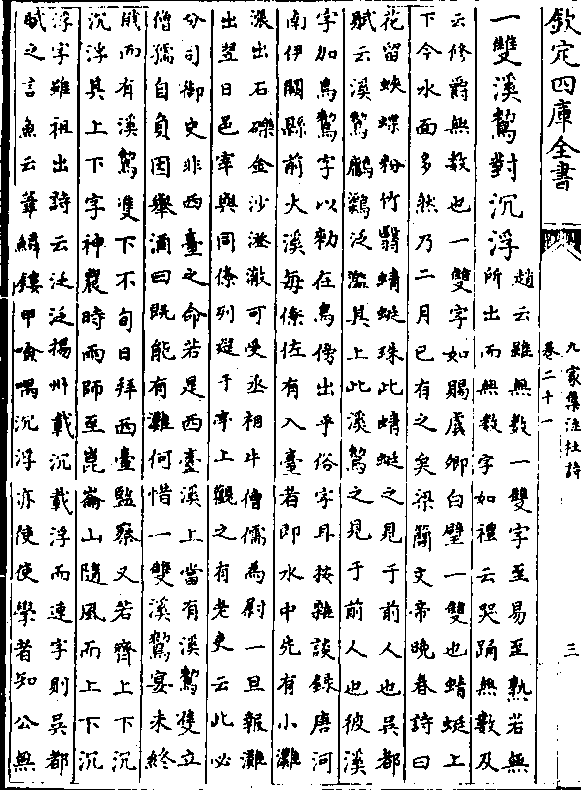 欽定四庫全書
九家集注杜詩
卷二十一
三
一雙溪鶒對沉浮
趙云雖無數一雙字至易至熟若無
所出而無數字如禮云哭踊無數及
云修爵無數也一雙字如賜虞卿白璧一雙也蜻蜓上
下今水面多然乃二月已有之矣梁簡文帝晚春詩曰
花留蛺蝶粉竹翳蜻蜓珠此蜻蜓之見于前人也吳都
賦云溪鶒泛濫其上此溪鶒之見于前人也彼溪
字加鳥鶒字以勑在鳥傍出乎俗字耳按雜談錄唐河
南伊闕縣前大溪每僚佐有入臺者即水中先有小灘
漲出石礫金沙澄澈可愛丞相牛僧儒為尉一旦報灘
出翌日邑宰與同僚列筵于亭上觀之有老吏云此必
分司御史非西臺之命若是西臺溪上當有溪鶒雙立
僧孺自負因舉酒曰既能有灘何惜一雙溪鶒宴未終
俄而有溪鶒雙下不旬日拜西臺監察又若齊上下沉
沉浮其上下字神農時雨師至崑崙山隨風而上下沉
浮字雖祖出詩云泛泛揚州載沉載浮而連字則吳都
賦之言魚云葺鱗鏤甲噞喁沉浮亦使使學者知公無